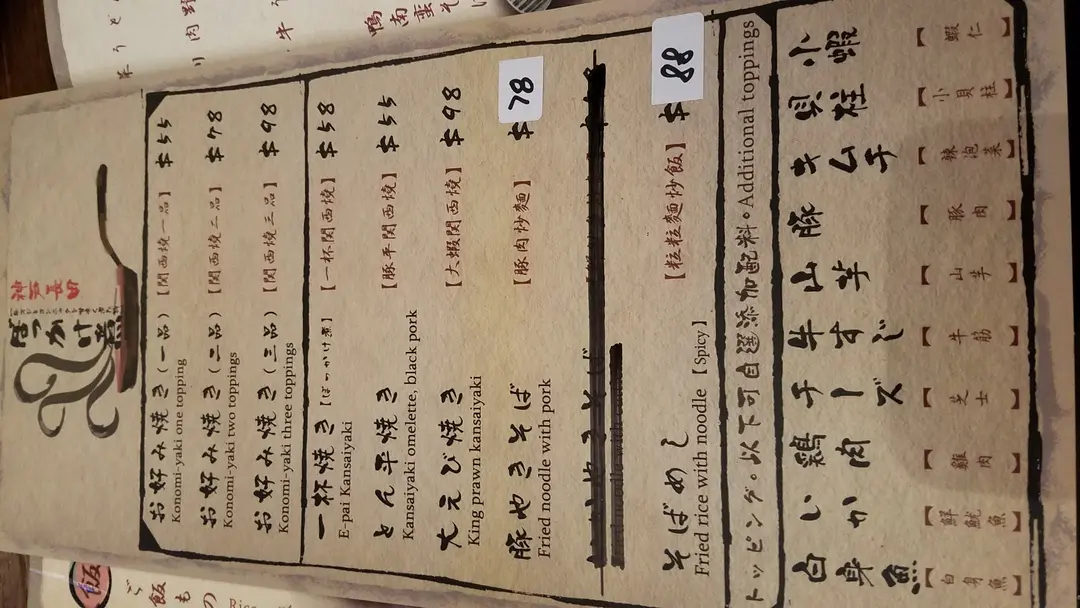 神戸長田
ぼっかけ屋
お好み焼き(一品)【関西燒一品】 $55
Konomi-yaki one topping
お好み焼き(二品)【関西燒二品】 $78
Konomi-yaki two toppings
お好み焼き(三品)【関西燒三品】 $98
Konomi-yaki three toppings
一杯焼き【ぼっかけ煮】【一杯関西燒】 $58
E-pai Kansaiyaki
とん平焼き【豚平関西燒】 $55
Kansaiyaki omelette, black pork
大えび焼き【大蝦関西燒】 $98
King prawn kansaiyaki
豚やきそば【豚肉炒麵】 $78
Fried noodle with pork
そばめし【粒粒麵炒飯】 $88
Fried rice with noodle【Spicy】
トッピング・以下可自選添加配料・Additional toppings
白身魚【白身魚】
いか【鮮魷魚】
鶏肉【雞肉】
チーズ【芝士】
牛すじ【牛筋】
山芋【山芋】
豚【豚肉】
キムチ【辣泡菜】
貝柱【小貝柱】
小蝦【蝦仁】
飯